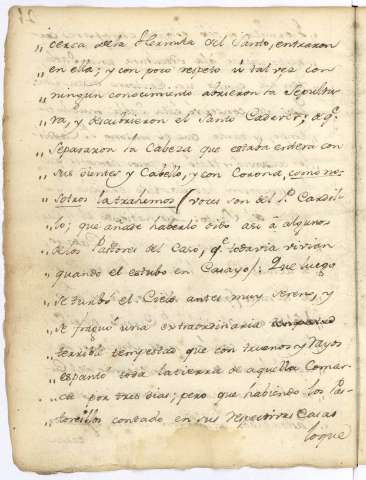 „ cerca de la Hermita del Santo, entraron
„ en ella; y con poco respeto ù tal vez con
„ ningun conocimiento abrieron la Sepultu-
„ ra, y descubrieron el Santo Cadaver; de q.e
„ separaron la Cabeza que estaba entera con
„ sus dientes y Cabello, y con Corona, como no-
„ sotros la trahemos (voces son del P.e
„ que añade haberlo oido asi â algunos
„ de los Pastores del Caso, q.e todavia vivian
„ quando el estubo en Casayo). Que luego
„ se turbó el Cielo antes muy sereno, y
„ se fraguó una extraordinaria
„ terrible tempestad que con truenos y rayos
„ espantó toda la tierra de aquella Comar-
„ ca por tres dias; pero que habiendo los Pas-
„ torcillos contado en sus respectivas Casas
loque